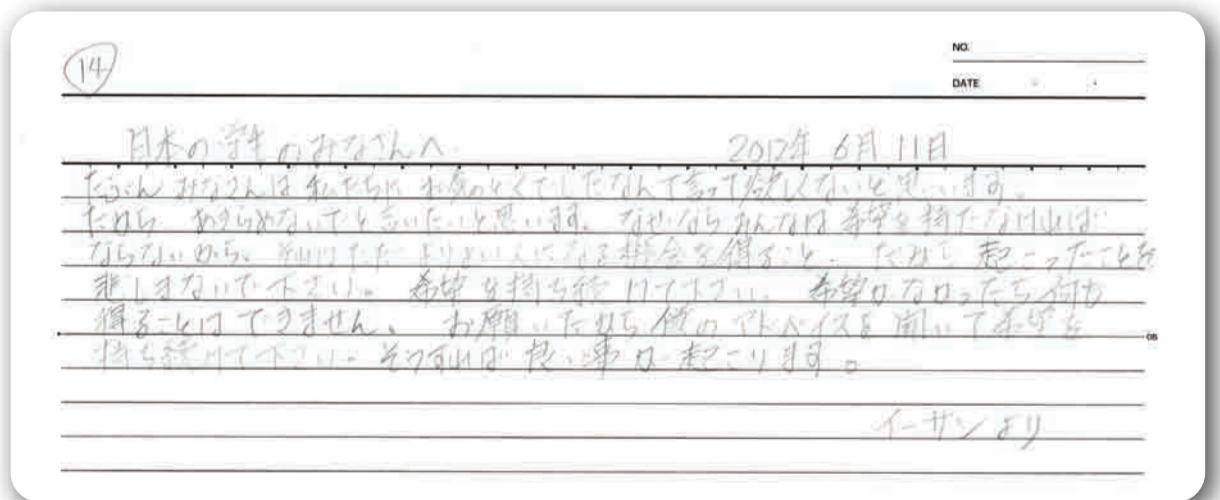 14
NO.
DATE
日本の学生のみなさんへ 2012年 6月 11日
たぶん みなさんは 私たちに お気のどくでしたなんて言って欲しくないと思います。
だから あきらめないでと言いたいと思います。なぜならみんなは 希望を持たなければ
ならないから。それはただ よりよい人になる機会を得ること。だから 起こったことを
悲しまないで下さい。 希望を持ち続けて下さい。 希望がなかったら何も
得ることはできません。 お願いだから僕のアドバイスを聞いて希望を
持ち続けて下さい。そうすれば 良い事が起こります。
イーサンより